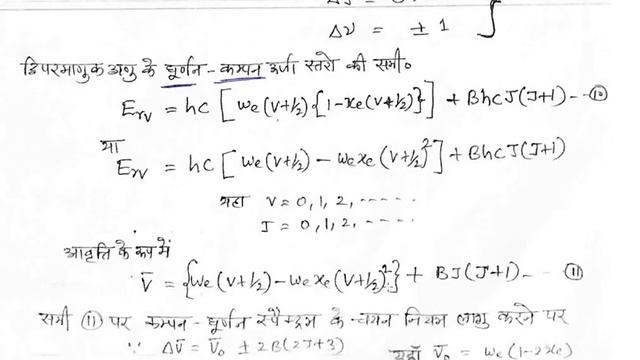 ΔJ = 0
ΔV = ± 1 }
द्विपरमाणुक अणु के घूर्णन-कम्पन ऊर्जा स्तरो की समी०
Erv = hc [ωe(V+1/2){1-xe(V+1/2)}] + BhcJ(J+1) -- (10)
या
Erv = hc [ωe(V+1/2) - ωexe(V+1/2)²] + BhcJ(J+1)
यहा V = 0, 1, 2, -----
J = 0, 1, 2, ----
आवृति के रूप में
V̄ = {ωe(V+1/2) - ωexe(V+1/2)²} + BJ(J+1) -- (11)
समी (11) पर कम्पन-घूर्णन स्पैक्ट्रम के चयन नियम लागु करने पर
∵ ΔV̄ = V̄o ± 2B(2J+3) यहाँ V̄o = ωe(1-2xe)